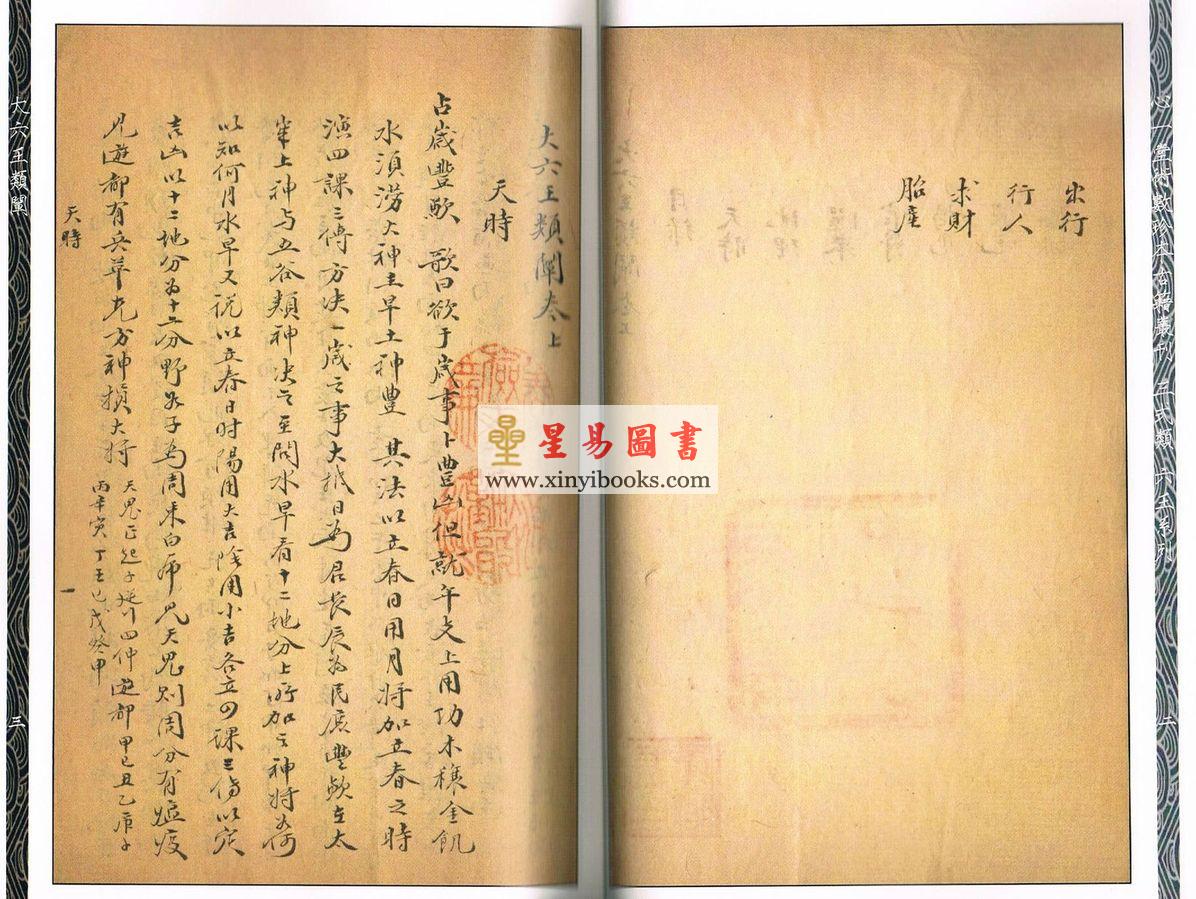 心一堂術數珍本古籍叢刊 三式類 六壬系列
二
出行
行人
求財
胎產
大六壬類闡卷上
天時
占歲豐歉 歌曰欲于歲事卜豐凶但就年支上用功木穰金飢
水須澇火神主旱土神豐 其法以立春日用月將加立春之時
演四課三傳方决一歲之事大抵日為君長辰為民庶豐歉在太
歲上神与五谷類神决之至問水旱看十二地分上所加之神將如何
以知何月水旱又說以立春日时陽用大吉陰用小吉各立四课三傳以定
吉凶以十二地分为十二分野如子為周来白虎見天鬼則周分有瘟疫
見遊都有兵革尤方神損大將
天鬼正起子逆行四仲遊都甲己丑乙庚子
丙辛寅丁壬巳戊癸申
天時
一
大六壬類闡
三
星易圖書
www.xinyibooks.com